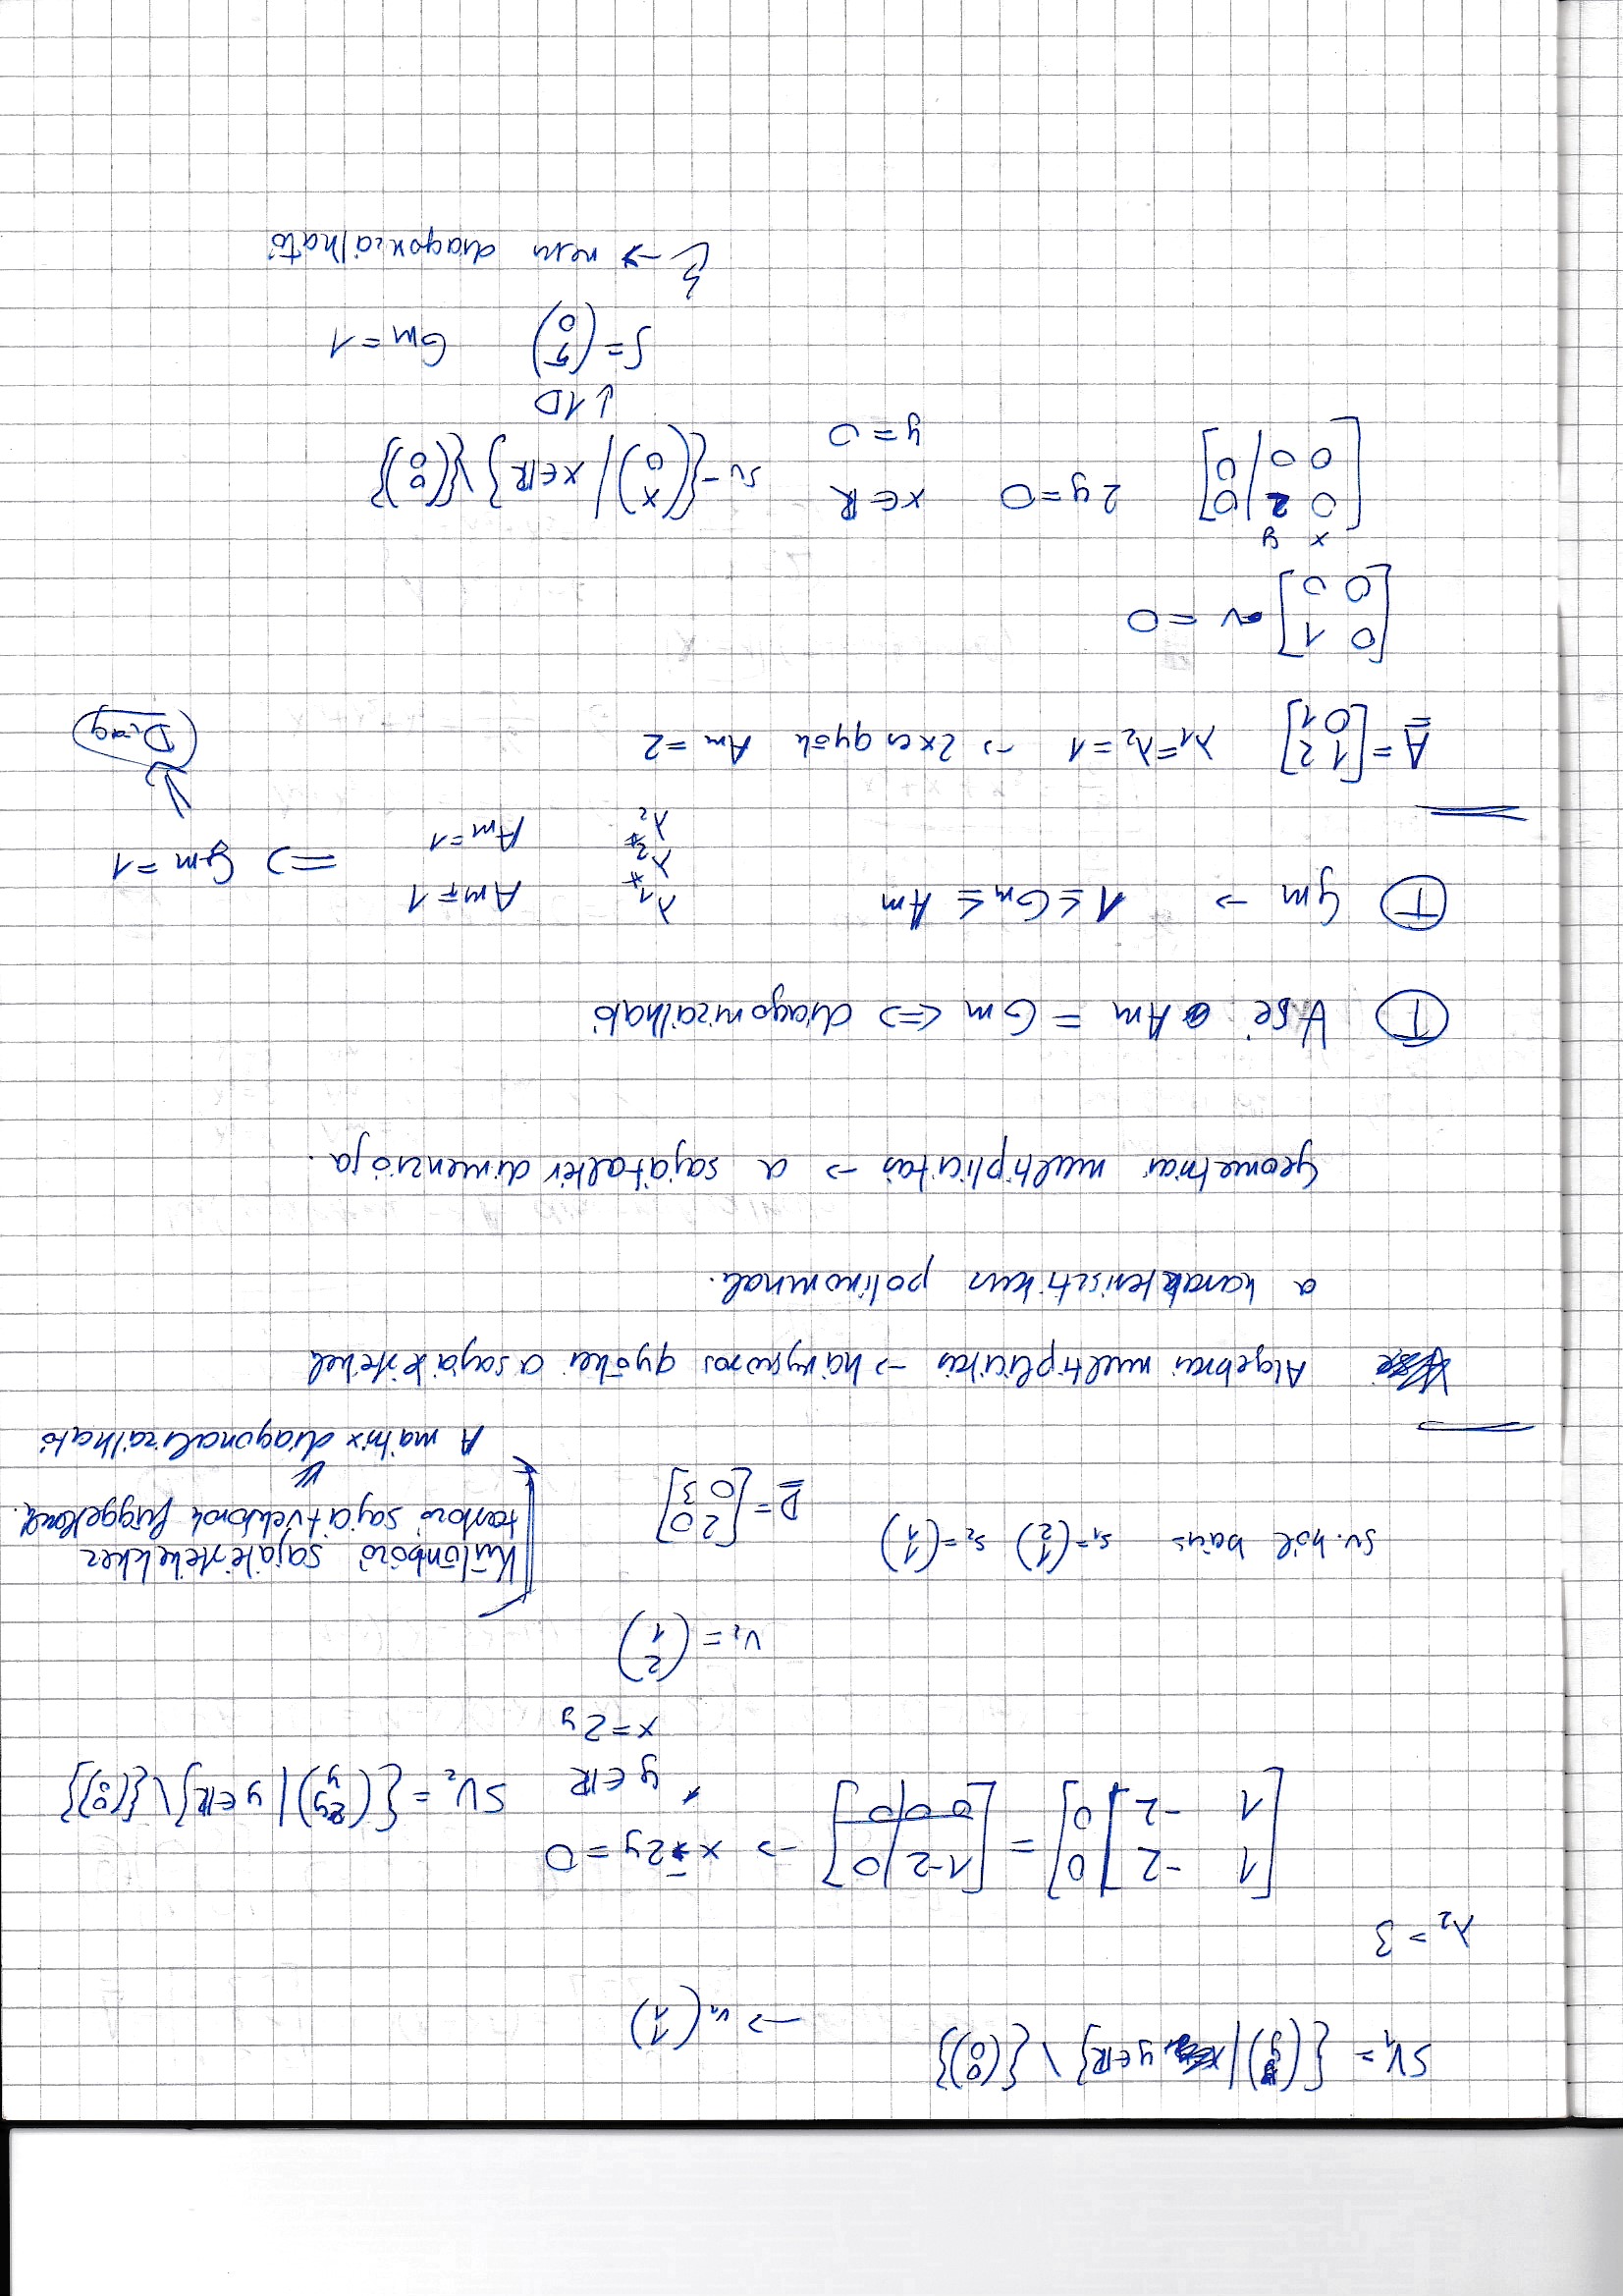 SV₁ = {(y y) | y ∈ ℝ} \ {(0 0)} → v₁ (1 1)
λ₂ = 3
[1 -2 | 0] = [1 -2 | 0] → x - 2y = 0
[1 -2 | 0] [0 0 | 0]
y ∈ ℝ SV₂ = {(2y y) | y ∈ ℝ} \ {(0 0)}
x = 2y
v₂ = (2 1)
sv. ből bázis s₁ = (1 2) s₂ = (1 1) D = [2 0
0 3]
Különböző sajátértékekhez
tartozó sajátvektorok függetlenek.
⇓
A mátrix diagonalizálható
Algebrai multiplicitás → hányszoros gyökei a sajátértékek
a karakterisztikus polinomnak.
Geometriai multiplicitás → a sajátaltér dimenziója.
Ⓣ ∀ sé Am = Gm ⇔ diagonizálható
Ⓣ Gm → 1 ≤ Gm ≤ Am
λ₁ Am = 1
≠
λ₂ ⇒ Gm = 1
≠
λ₂ Am = 1
⇓
Diag
A = [1 2
0 1] λ₁ = λ₂ = 1 → 2x es gyök Am = 2
[0 1
0 0] · v = 0
x y
[0 2 | 0
0 0 | 0] 2y = 0 x ∈ ℝ
y = 0
sv = {(x 0) | x ∈ ℝ} \ {(0 0)}
↓ 1D
S = (5 0) Gm = 1
→ nem diagonizálható